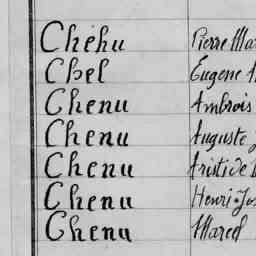 Chéhu Pierre Mar
Chel Eugene
Chenu Ambrois
Chenu Auguste
Chenu Aristide
Chenu Henri-Jos
Chenu Marcel